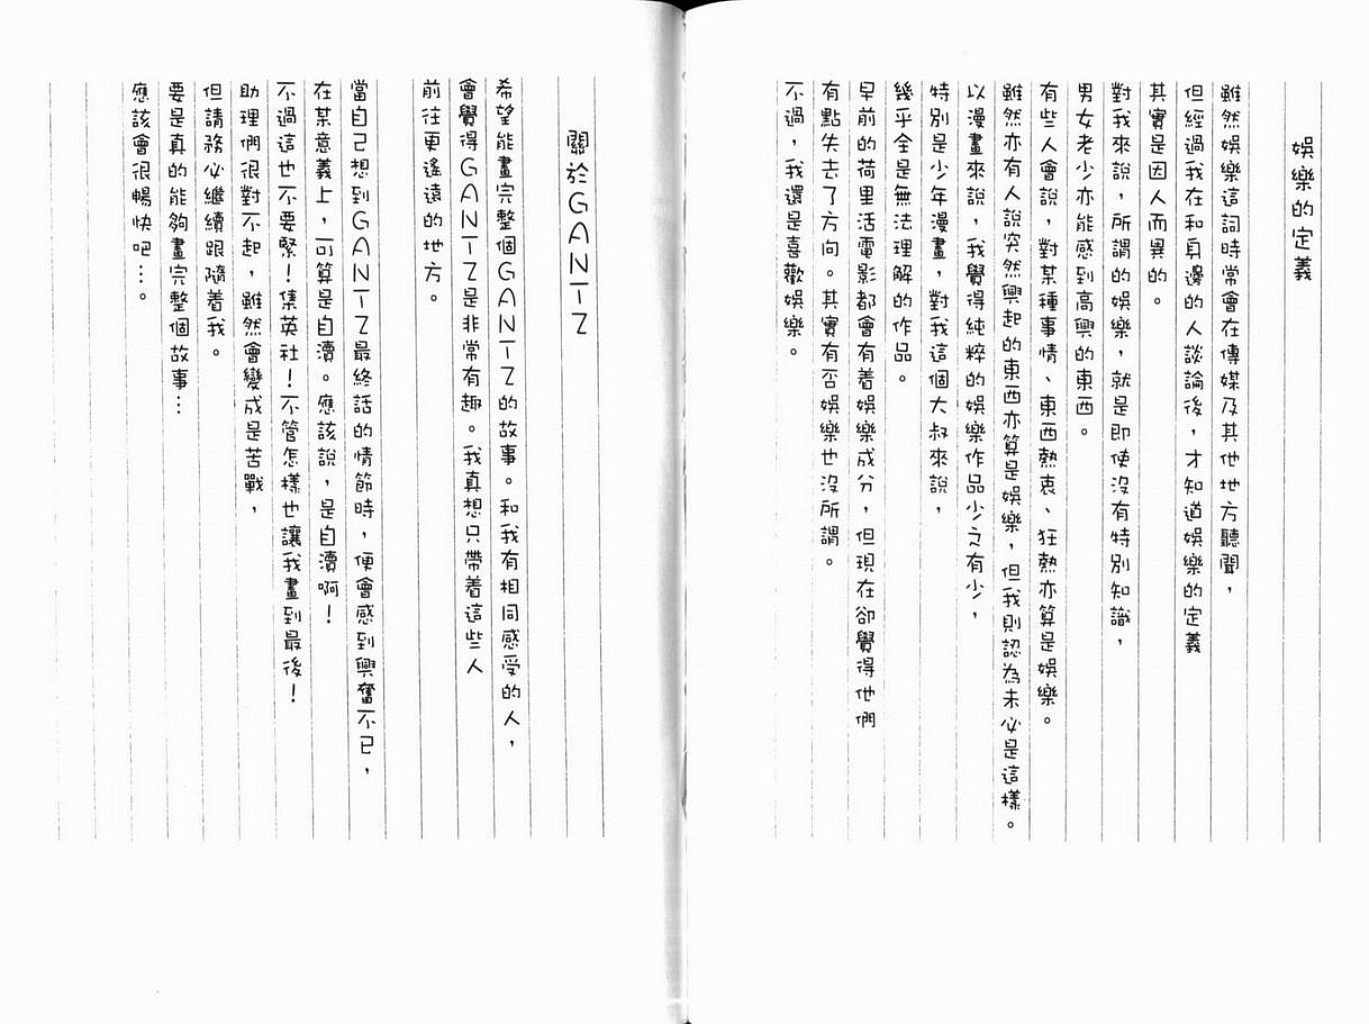 娛樂的定義
雖然娛樂這詞時常會在傳媒及其他地方聽聞，
但經過我在和身邊的人談論後，才知道娛樂的定義
其實是因人而異的。
對我來說，所謂的娛樂，就是即使沒有特別知識，
男女老少亦能感到高興的東西。
有些人會說，對某種事情、東西熱衷、狂熱亦算是娛樂。
雖然亦有人說突然興起的東西亦算是娛樂，但我則認為未必是這樣。
以漫畫來說，我覺得純粹的娛樂作品少之有少，
特別是少年漫畫，對我這個大叔來說，
幾乎全是無法理解的作品。
早前的荷里活電影都會有着娛樂成分，但現在卻覺得他們
有點失去了方向。其實有否娛樂也沒所謂。
不過，我還是喜歡娛樂。
關於GANTZ
希望能畫完整個GANTZ的故事。和我有相同感受的人，
會覺得GANTZ是非常有趣。我真想只帶着這些人
前往更遙遠的地方。
當自己想到GANTZ最終話的情節時，便會感到興奮不已，
在某意義上，可算是自瀆。應該說，是自瀆啊！
不過這也不要緊！集英社！不管怎樣也讓我畫到最後！
助理們很對不起，雖然會變成是苦戰，
但請務必繼續跟隨着我。
要是真的能夠畫完整個故事…
應該會很暢快吧…。